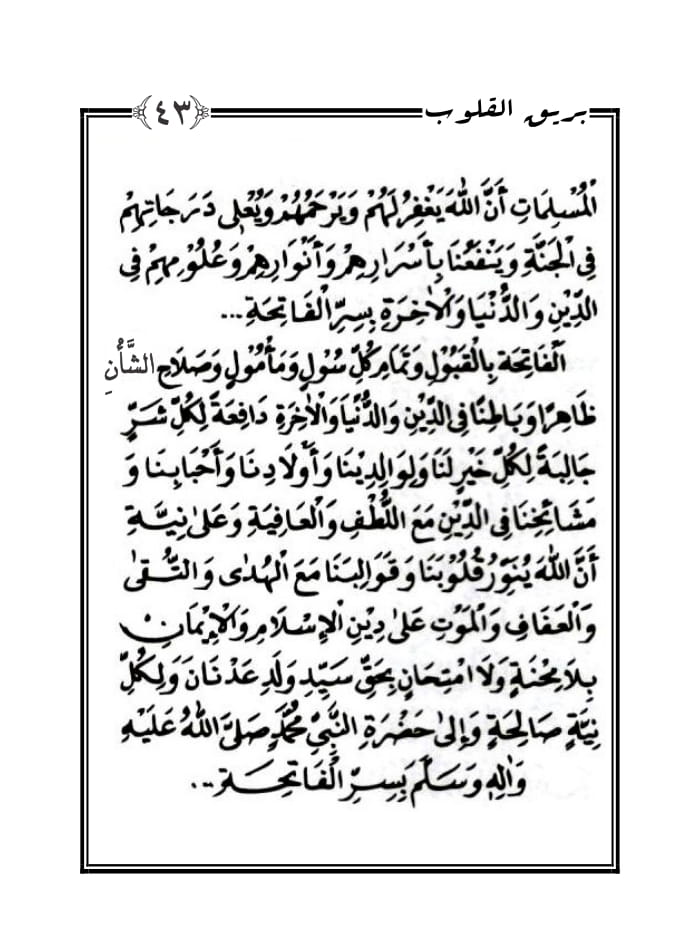 بريق القلوب
﴿٤٣﴾
الْمُسْلِمَاتِ أَنَّ اللّٰهَ يَغْفِرُ لَهُمْ وَيَرْحَمُهُمْ وَيُعْلِى دَرَجَاتِهِمْ
فِى الْجَنَّةِ وَيَنْفَعُنَا بِأَسْرَارِهِمْ وَأَنْوَارِهِمْ وَعُلُوْمِهِمْ فِى
الدِّيْنِ وَالدُّنْيَا وَالْاٰخِرَةِ بِسِرِّ الْفَاتِحَةِ...
الْفَاتِحَة بِالْقَبُوْلِ وَتَمَامِ كُلِّ سُوْلٍ وَمَأْمُوْلٍ وَصَلَاحِ الشَّأْنِ
ظَاهِرًا وَبَاطِنًا فِى الدِّيْنِ وَالدُّنْيَا وَالْاٰخِرَةِ دَافِعَةً لِكُلِّ شَرٍّ
جَالِبَةً لِكُلِّ خَيْرٍ لَنَا وَلِوَالِدِيْنَا وَأَوْلَادِنَا وَأَحْبَابِنَا وَ
مَشَائِخِنَا فِى الدِّيْنِ مَعَ اللُّطْفِ وَالْعَافِيَةِ وَعَلىٰ نِيَّةِ
أَنَّ اللّٰهَ يُنَوِّرُ قُلُوْبَنَا وَقَوَالِبَنَا مَعَ الْهُدٰى وَالتُّقىٰ
وَالْعَفَافِ وَالْمَوْتِ عَلىٰ دِيْنِ الْإِسْلَامِ وَالْإِيْمَانِ
بِلَا مِحْنَةٍ وَلَا امْتِحَانٍ بِحَقِّ سَيِّدِ وَلَدِ عَدْنَانَ وَلِكُلِّ
نِيَّةٍ صَالِحَةٍ وَإِلىٰ حَضْرَةِ النَّبِيِّ مُحَمَّدٍ صَلَّى اللّٰهُ عَلَيْهِ
وَاٰلِهِ وَسَلَّمَ بِسِرِّ الْفَاتِحَة...